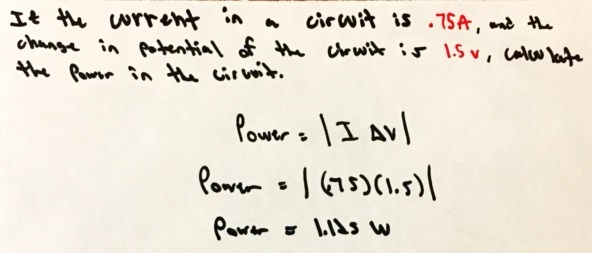 If the current in a circuit is .75A, and the
change in potential of the circuit is 1.5 v, calculate
the Power in the circuit.
Power = |I ΔV|
Power = |(.75)(1.5)|
Power = 1.125 W